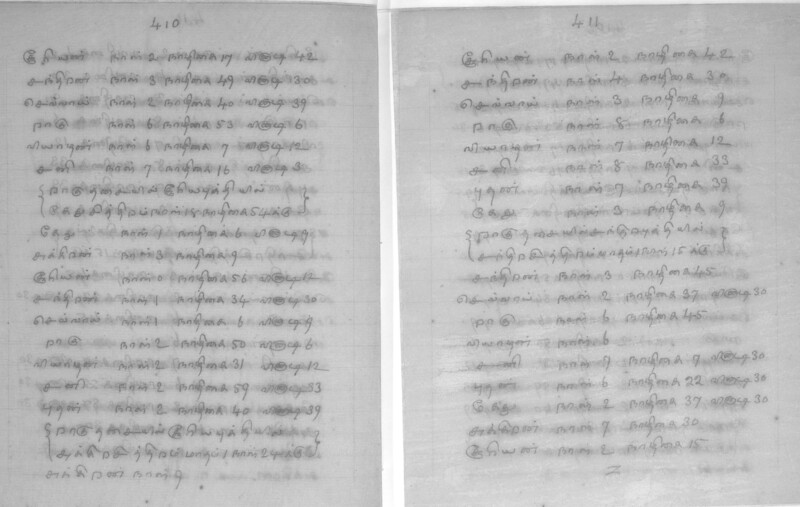 410
சூரியன் நாள் 2 நாழிகை 17 வினாடி 42
சந்திரன் நாள் 3 நாழிகை 49 வினாடி 30
செவ்வாய் நாள் 2 நாழிகை 40 வினாடி 39
ராகு நாள் 6 நாழிகை 53 வினாடி 6
வியாழன் நாள் 6 நாழிகை 7 வினாடி 12
சனி நாள் 7 நாழிகை 16 வினாடி 3
ராகு தசையில் சூரியபுத்தியில்
கேது நாழிகை 54க்கு
கேது நாள் 1 நாழிகை 6 வினாடி 9
சுக்கிரன் நாள் 3 நாழிகை 9
சூரியன் நாள் 0 நாழிகை 56 வினாடி
சந்திரன் நாள் 1 நாழிகை 34 வினாடி 30
செவ்வாய் நாள் 1 நாழிகை 6 வினாடி 9
ராகு நாள் 2 நாழிகை 50 வினாடி 6
வியாழன் நாள் 2 நாழிகை 31 வினாடி 12
சனி நாள் 2 நாழிகை 59 வினாடி 33
புதன் நாள் 2 நாழிகை 40 வினாடி 39
ராகு தசையில் சூரியபுத்தியில்
மாதம் 1 நாள் 24க்கு
சுக்கிரன் நாள் 9
411
சூரியன் நாள் 2 நாழிகை 42
சந்திரன் நாள் 4 நாழிகை 30
செவ்வாய் நாள் 3 நாழிகை 9
ராகு நாள் 8 நாழிகை 6
வியாழன் நாள் 7 நாழிகை 12
சனி நாள் 8 நாழிகை 33
புதன் நாள் 7 நாழிகை 39
கேது நாள் 3 நாழிகை 9
ராகு தசையில் சந்திரபுத்தியில்
நாள் 15க்கு
சந்திரன் நாள் 3 நாழிகை 45
செவ்வாய் நாள் 2 நாழிகை 37 வினாடி 30
ராகு நாள் 6 நாழிகை 45
வியாழன் நாள் 6
சனி நாள் 7 நாழிகை 7 வினாடி 30
புதன் நாள் 6 நாழிகை 22 வினாடி 30
கேது நாள் 2 நாழிகை 37 வினாடி 30
சுக்கிரன் நாள் 7 நாழிகை 30
சூரியன் நாள் 2 நாழிகை 15